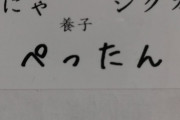 にゃ　ンクス
養子
ぺったん